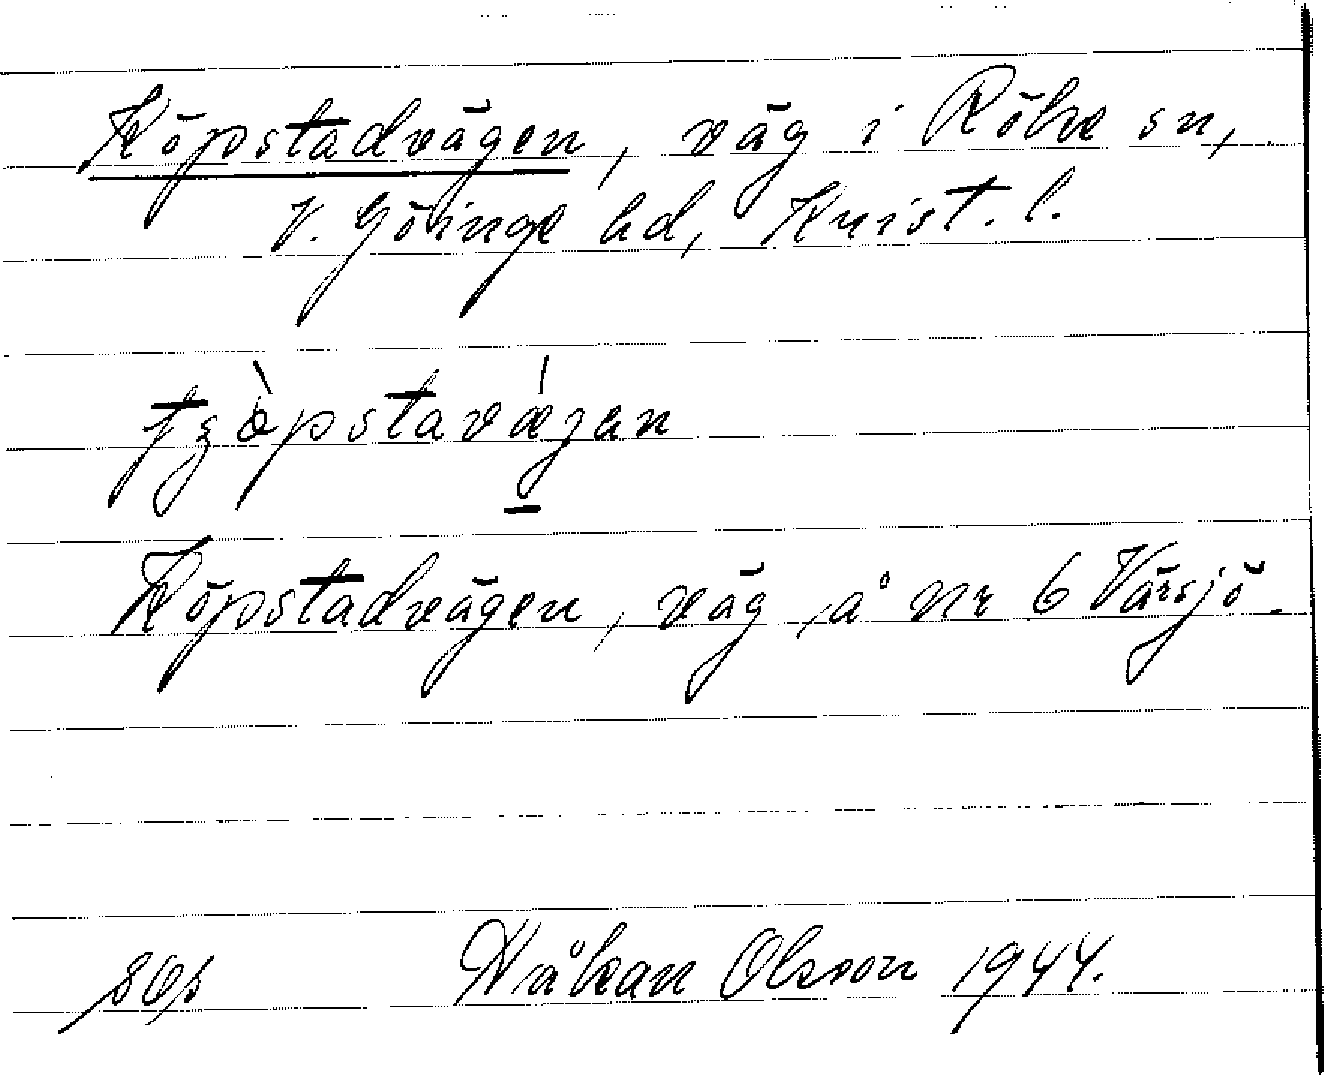 Köpstadvägen, väg i Röke sn,
V. Göinge hd, Krist. l.
tʒö̀pstavǽgan
Köpstadvägen, väg å nr 6 Värsjö.
Håkan Olsson 1944.